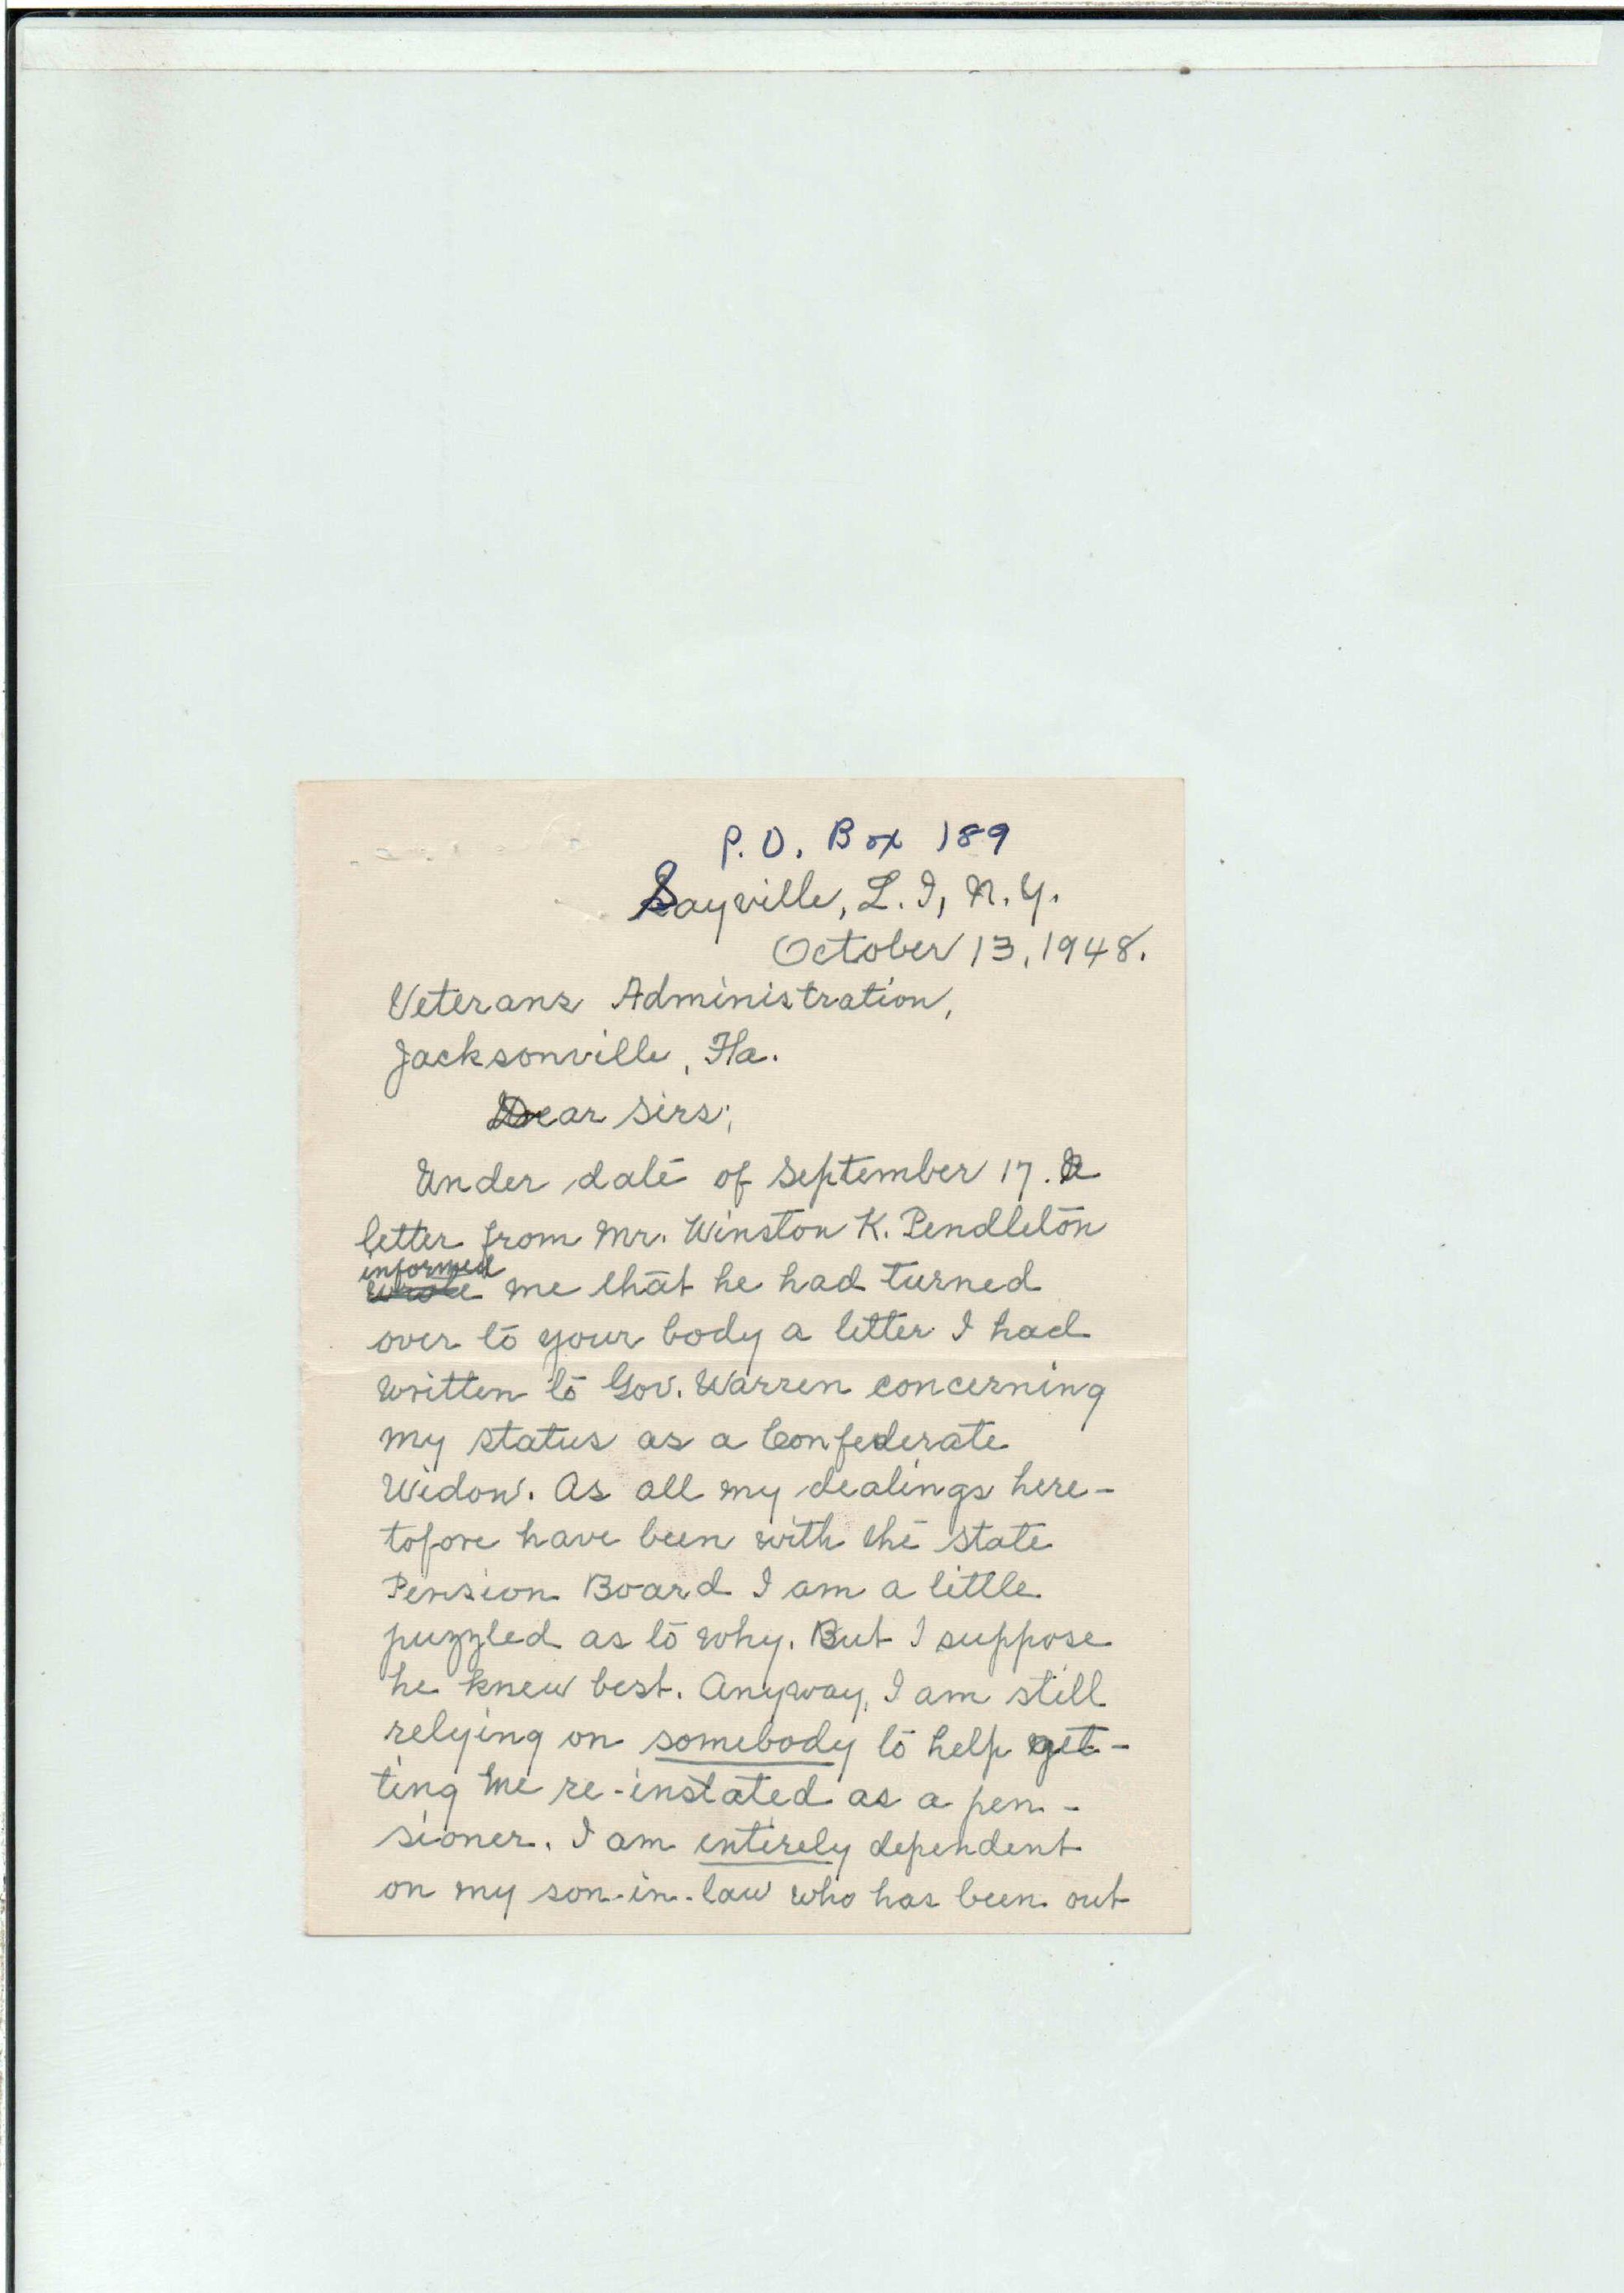 P.O. Box 189
Sayville, L.I, N.Y.
October 13, 1948.
Veterans Administration,
Jacksonville, Fla.
Dear Sirs;
Under date of September 17. a
letter from Mr. Winston K. Pendleton
informed
wrote me that he had turned
over to your body a letter I had
written to Gov. Warren concerning
my status as a Confederate
Widow. As all my dealings here-
tofore have been with the State
Pension Board I am a little
puzzled as to why. But I suppose
he knew best. Anyway, I am still
relying on somebody to help get-
ting me re-instated as a pen-
sioner. I am entirely dependent
on my son-in-law who has been out